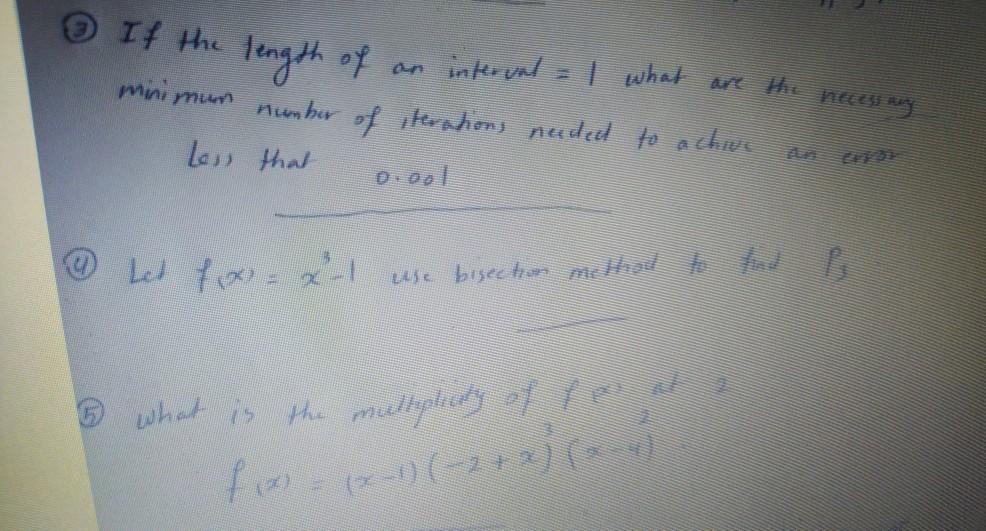 ③ If the length of an interval = 1 what are the necessary
minimum number of iterations needed to achive an error
Less that 0.001
④ Let f(x) = x³-1 use bisection method to find P₃
⑤ what is the multiplicity of f(x) at 2
f(x) = (x-1)(-2+x)³(x-4)²